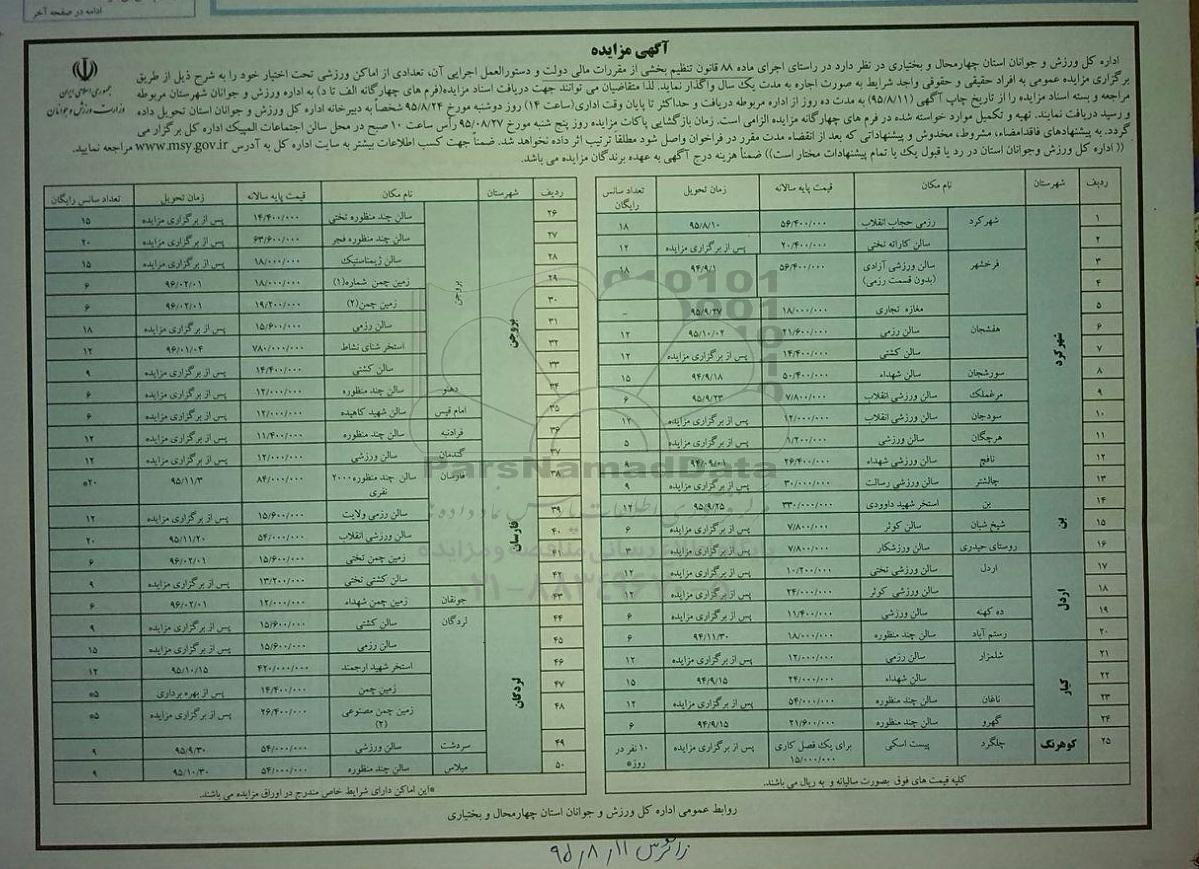 ادامه در صفحه آخر
آگهی مزایده
جمهوری اسلامی ایران
وزارت ورزش و جوانان
اداره کل ورزش و جوانان استان چهارمحال و بختیاری در نظر دارد در راستای اجرای ماده ۸۸ قانون تنظیم بخشی از مقررات مالی دولت و دستورالعمل اجرایی آن، تعدادی از اماکن ورزشی تحت اختیار خود را به شرح ذیل از طریق
برگزاری مزایده عمومی به افراد حقیقی و حقوقی واجد شرایط به صورت اجاره به مدت یک سال واگذار نماید. لذا متقاضیان می توانند جهت دریافت اسناد مزایده(فرم های چهارگانه الف تا د) به اداره ورزش و جوانان شهرستان مربوطه
مراجعه و بسته اسناد مزایده را از تاریخ چاپ آگهی (۹۵/۸/۱۱) به مدت ده روز از اداره مربوطه دریافت و حداکثر تا پایان وقت اداری(ساعت ۱۴) روز دوشنبه مورخ ۹۵/۸/۲۴ شخصاً به دبیرخانه اداره کل ورزش و جوانان استان تحویل داده
و رسید دریافت نمایند. تهیه و تکمیل موارد خواسته شده در فرم های چهارگانه مزایده الزامی است. زمان بازگشایی پاکات مزایده روز پنج شنبه مورخ ۹۵/۰۸/۲۷ رأس ساعت ۱۰ صبح در محل سالن اجتماعات المپیک اداره کل برگزار می
گردد. به پیشنهادهای فاقدامضاء، مشروط، مخدوش و پیشنهاداتی که بعد از انقضاء مدت مقرر در فراخوان واصل شود مطلقا ترتیب اثر داده نخواهد شد. ضمناً جهت کسب اطلاعات بیشتر به سایت اداره کل به آدرس www.msy.gov.ir مراجعه نمایید.
(( اداره کل ورزش وجوانان استان در رد یا قبول یک یا تمام پیشنهادات مختار است)) ضمناً هزینه درج آگهی به عهده برندگان مزایده می باشد.
ردیف شهرستان نام مکان قیمت پایه سالانه زمان تحویل تعداد سانس رایگان
شهرکرد
۱ شهرکرد رزمی حجاب انقلاب ۵۶/۴۰۰/۰۰۰ ۹۵/۸/۱۰ ۱۸
۲ سالن کاراته تختی ۲۰/۴۰۰/۰۰۰ پس از برگزاری مزایده ۱۲
۳ فرخشهر سالن ورزشی آزادی ۵۶/۴۰۰/۰۰۰ ۹۴/۹/۱ ۱۸
۴ (بدون قسمت رزمی)
۵ مغازه تجاری ۱۸/۰۰۰/۰۰۰ ۹۵/۹/۲۷ -
۶ هفشجان سالن رزمی ۲۱/۶۰۰/۰۰۰ ۹۵/۱۰/۰۲ ۱۲
۷ سالن کشتی ۱۴/۴۰۰/۰۰۰ پس از برگزاری مزایده ۱۲
۸ سورشجان سالن شهداء ۵۰/۴۰۰/۰۰۰ ۹۴/۹/۱۸ ۱۵
۹ مرغملک سالن ورزشی انقلاب ۷/۸۰۰/۰۰۰ ۹۵/۹/۲۳ ۶
۱۰ سودجان سالن ورزشی انقلاب ۱۲/۰۰۰/۰۰۰ پس از برگزاری مزایده ۱۲
۱۱ هرچگان سالن ورزشی ۸/۲۰۰/۰۰۰ پس از برگزاری مزایده ۵
۱۲ نافچ سالن ورزشی شهداء ۲۶/۴۰۰/۰۰۰ ۹۴/۰۹/۰۱ ۹
۱۳ چالشتر سالن ورزشی رسالت ۳۰/۰۰۰/۰۰۰ پس از برگزاری مزایده ۹
بن
۱۴ بن استخر شهید داوودی ۳۳۰/۰۰۰/۰۰۰ ۹۵/۹/۲۵ ۱۲
۱۵ شیخ شبان سالن کوثر ۷/۸۰۰/۰۰۰ پس از برگزاری مزایده ۶
۱۶ روستای حیدری سالن ورزشکار ۷/۸۰۰/۰۰۰ پس از برگزاری مزایده ۳
اردل
۱۷ اردل سالن ورزشی تختی ۱۰/۲۰۰/۰۰۰ پس از برگزاری مزایده ۱۲
۱۸ سالن ورزشی کوثر ۲۴/۰۰۰/۰۰۰ پس از برگزاری مزایده
۱۹ ده کهنه سالن ورزشی ۱۱/۴۰۰/۰۰۰ پس از برگزاری مزایده ۶
۲۰ رستم آباد سالن چند منظوره ۱۸/۰۰۰/۰۰۰ ۹۴/۱۱/۳۰ ۶
کیار
۲۱ شلمزار سالن رزمی ۱۲/۰۰۰/۰۰۰ پس از برگزاری مزایده ۱۲
۲۲ سالن شهداء ۲۴/۰۰۰/۰۰۰ ۹۴/۹/۱۵ ۱۵
۲۳ ناغان سالن چند منظوره ۵۴/۰۰۰/۰۰۰ پس از برگزاری مزایده ۱۲
۲۴ گهرو سالن چند منظوره ۲۱/۶۰۰/۰۰۰ ۹۴/۹/۱۵ ۶
۲۵ کوهرنگ چلگرد پیست اسکی برای یک فصل کاری پس از برگزاری مزایده ۱۰ نفر در
۱۵/۰۰۰/۰۰۰ روز*
کلیه قیمت های فوق بصورت سالیانه و به ریال می باشند.
ردیف شهرستان نام مکان قیمت پایه سالانه زمان تحویل تعداد سانس رایگان
بروجن
۲۶ بروجن سالن چند منظوره تختی ۱۴/۴۰۰/۰۰۰ پس از برگزاری مزایده ۱۵
۲۷ سالن چند منظوره فجر ۶۳/۶۰۰/۰۰۰ پس از برگزاری مزایده ۲۰
۲۸ سالن ژیمناستیک ۱۸/۰۰۰/۰۰۰ پس از برگزاری مزایده ۱۵
۲۹ زمین چمن شماره(۱) ۱۸/۰۰۰/۰۰۰ ۹۶/۰۲/۰۱ ۶
۳۰ زمین چمن(۲) ۱۹/۲۰۰/۰۰۰ ۹۶/۰۲/۰۱ ۶
۳۱ سالن رزمی ۱۵/۶۰۰/۰۰۰ پس از برگزاری مزایده ۱۸
۳۲ استخر شنای نشاط ۷۸۰/۰۰۰/۰۰۰ ۹۶/۰۱/۰۴ ۱۲
۳۳ سالن کشتی ۱۴/۴۰۰/۰۰۰ پس از برگزاری مزایده ۹
۳۴ دهنو سالن چند منظوره ۱۲/۰۰۰/۰۰۰ پس از برگزاری مزایده ۶
۳۵ امام قیس سالن شهید کاهیده ۱۲/۰۰۰/۰۰۰ پس از برگزاری مزایده ۶
۳۶ فرادنبه سالن چند منظوره ۱۱/۴۰۰/۰۰۰ پس از برگزاری مزایده ۱۲
۳۷ گندمان سالن ورزشی ۱۲/۰۰۰/۰۰۰ پس از برگزاری مزایده ۱۲
فارسان
۳۸ فارسان سالن چند منظوره ۲۰۰۰ ۸۴/۰۰۰/۰۰۰ ۹۵/۱۱/۳ ۲۰*
نفری
۳۹ سالن رزمی ولایت ۱۵/۶۰۰/۰۰۰ پس از برگزاری مزایده ۱۲
۴۰ سالن ورزشی انقلاب ۵۴/۰۰۰/۰۰۰ ۹۵/۱۱/۲۰ ۲۰
۴۱ زمین چمن تختی ۱۵/۶۰۰/۰۰۰ ۹۶/۰۲/۰۱ ۶
۴۲ سالن کشتی تختی ۱۳/۲۰۰/۰۰۰ پس از برگزاری مزایده ۹
۴۳ جونقان زمین چمن شهداء ۱۲/۰۰۰/۰۰۰ ۹۶/۰۲/۰۱ ۶
لردگان
۴۴ لردگان سالن کشتی ۱۵/۶۰۰/۰۰۰ پس از برگزاری مزایده ۹
۴۵ سالن رزمی ۱۵/۶۰۰/۰۰۰ پس از برگزاری مزایده ۱۵
۴۶ استخر شهید ارجمند ۴۲۰/۰۰۰/۰۰۰ ۹۵/۱۰/۱۵ ۱۲
۴۷ زمین چمن ۱۴/۴۰۰/۰۰۰ پس از بهره برداری ۵*
۴۸ زمین چمن مصنوعی ۲۶/۴۰۰/۰۰۰ پس از برگزاری مزایده ۵*
(۲)
۴۹ سردشت سالن ورزشی ۵۴/۰۰۰/۰۰۰ ۹۵/۹/۳۰ ۹
۵۰ میلاس سالن چند منظوره ۵۴/۰۰۰/۰۰۰ ۹۵/۱۰/۳۰ ۹
*این اماکن دارای شرایط خاص مندرج در اوراق مزایده می باشند.
روابط عمومی اداره کل ورزش و جوانان استان چهارمحال و بختیاری
زاگرس ۹۵/۸/۱۱
ParsNamadData